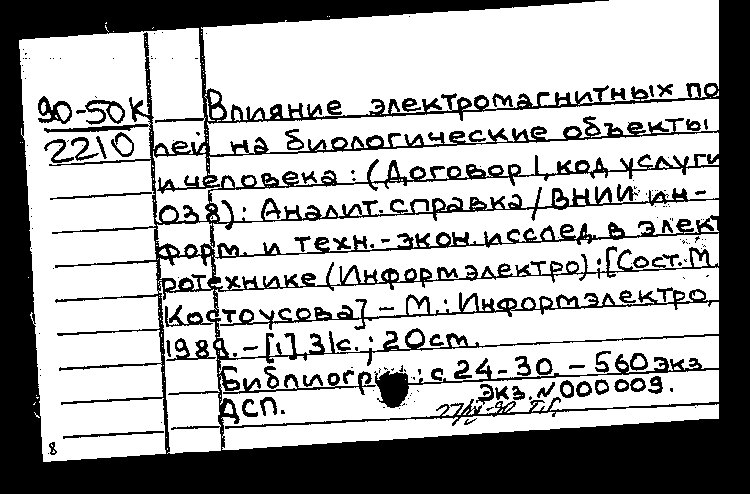 90-50К
2210
Влияние электромагнитных по
лей на биологические объекты
и человека : (Договор 1, код услуги
038) : Аналит. справка / ВНИИ ин-
форм. и техн.-экон. исслед. в элект
ротехнике (Информэлектро) ; [Сост. М.
Костоусова]. - М. : Информэлектро,
1989. - [1], 31 с. ; 20 см.
Библиогр : с. 24-30. - 560 экз
Экз. № 000009.
ДСП.
8